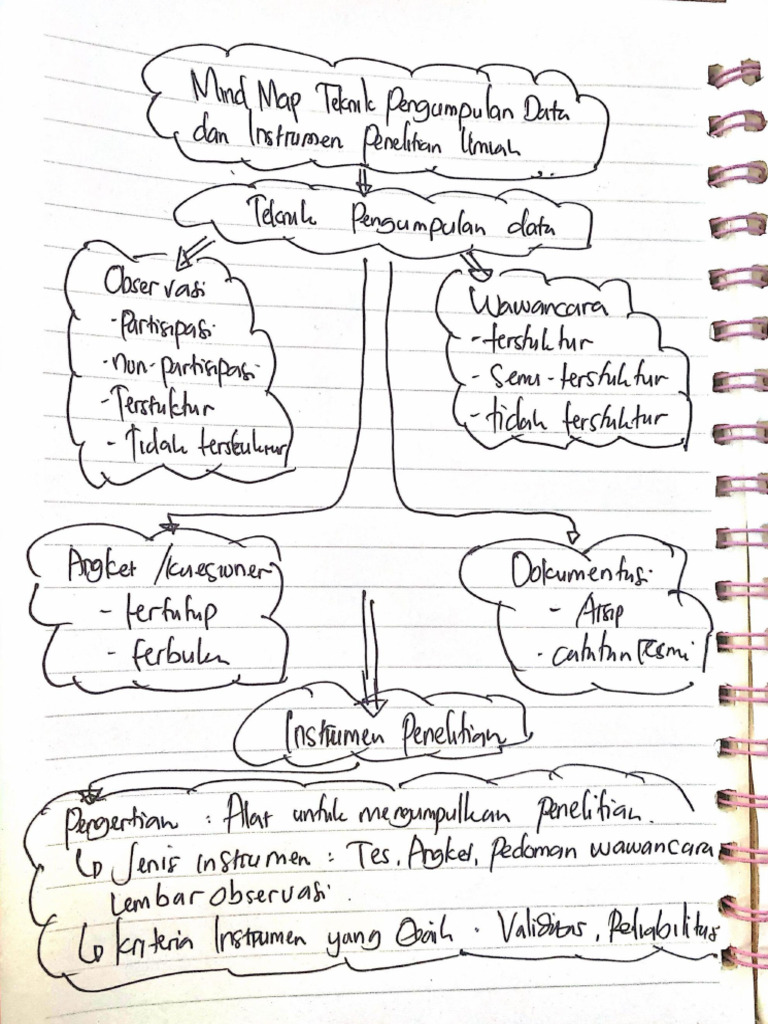 Mind Map Teknik Pengumpulan Data
dan Instrumen Penelitian Ilmiah
Teknik Pengumpulan data
Observasi
- Partisipasi
- non-partisipasi
- Terstuktur
- Tidak terstuktur
Wawancara
- terstuktur
- Semi-terstuktur
- tidak terstuktur
Angket /kuesioner
- tertutup
- terbuka
Dokumentasi
- Arsip
- catatan resmi
Instrumen Penelitian
Pengertian : Alat untuk mengumpulkan penelitian.
↳ Jenis instrumen : Tes, Angket, Pedoman wawancara
Lembar observasi.
↳ kriteria Instrumen yang Baik : Validitas, Reliabilitas